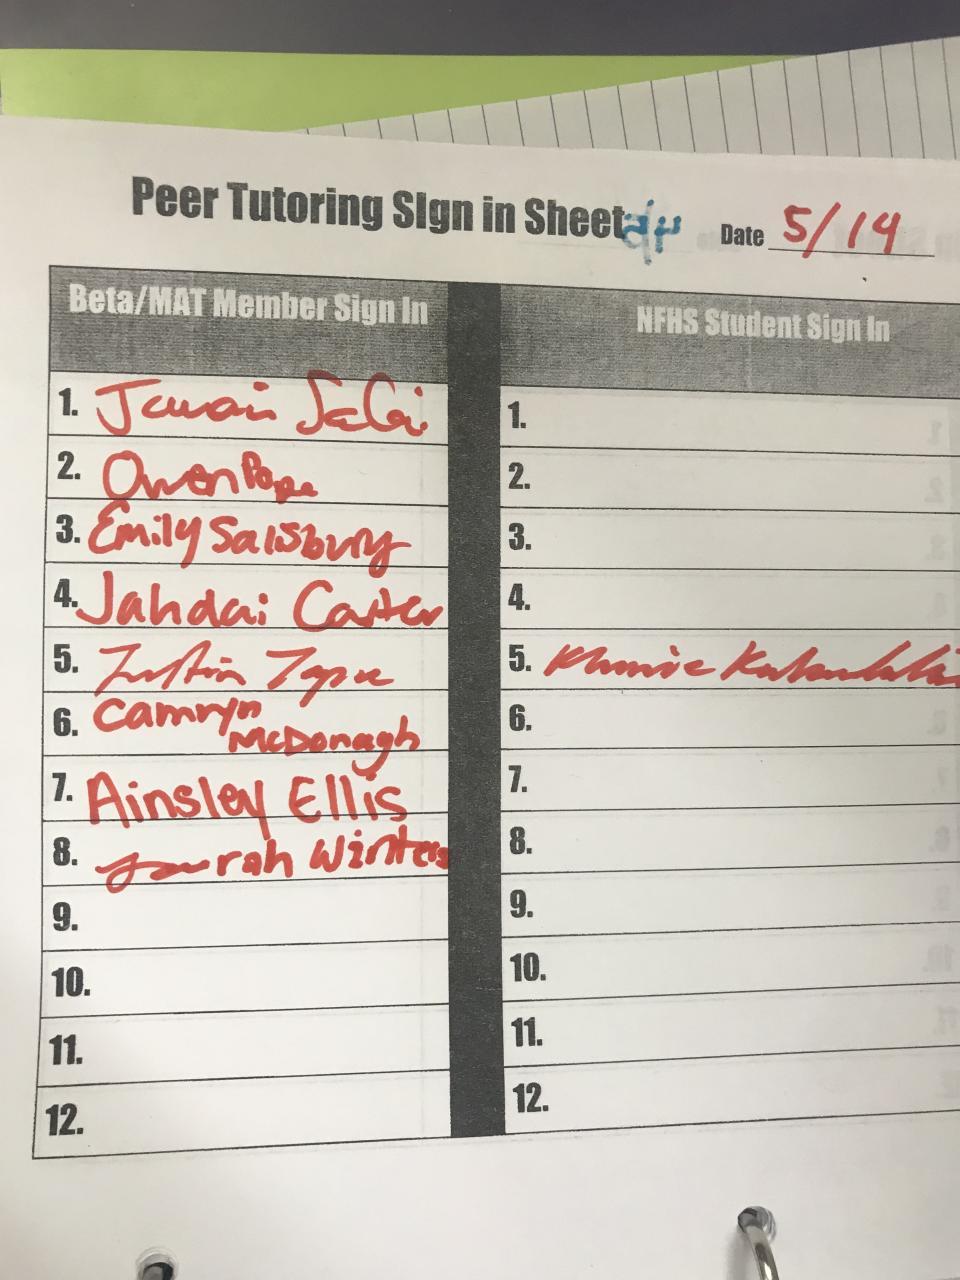 Peer Tutoring SIgn in Sheet Date 5/14
Beta/MAT Member Sign In NFHS Student Sign In
1. 1.
2. Owen Pope 2.
3. Emily Salisbury 3.
4. Jahdai Carter 4.
5. 5.
6. Camryn McDonagh 6.
7. Ainsley Ellis 7.
8. Winters 8.
9. 9.
10. 10.
11. 11.
12. 12.